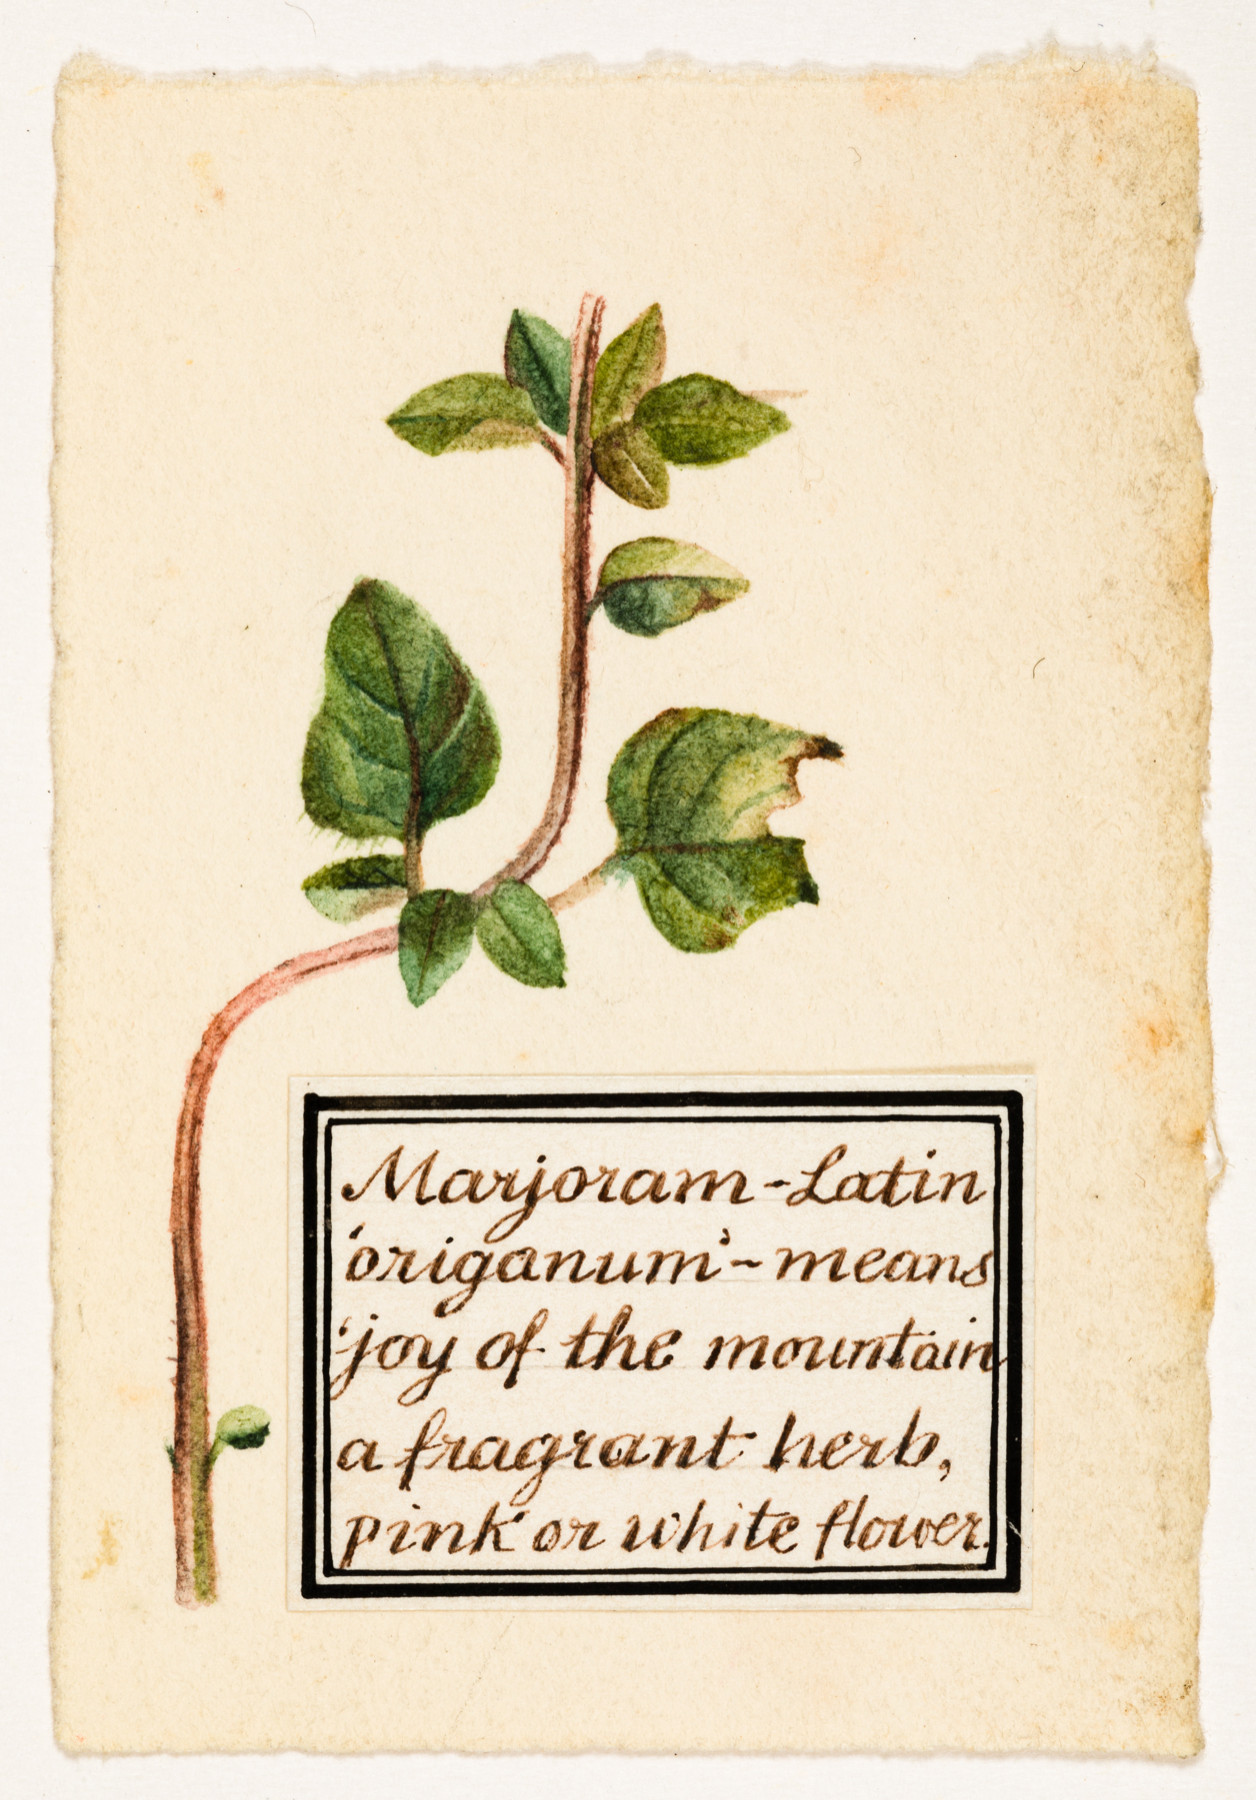 Marjoram - Latin
'origanum' - means
'joy of the mountain
a fragrant herb,
pink or white flower.